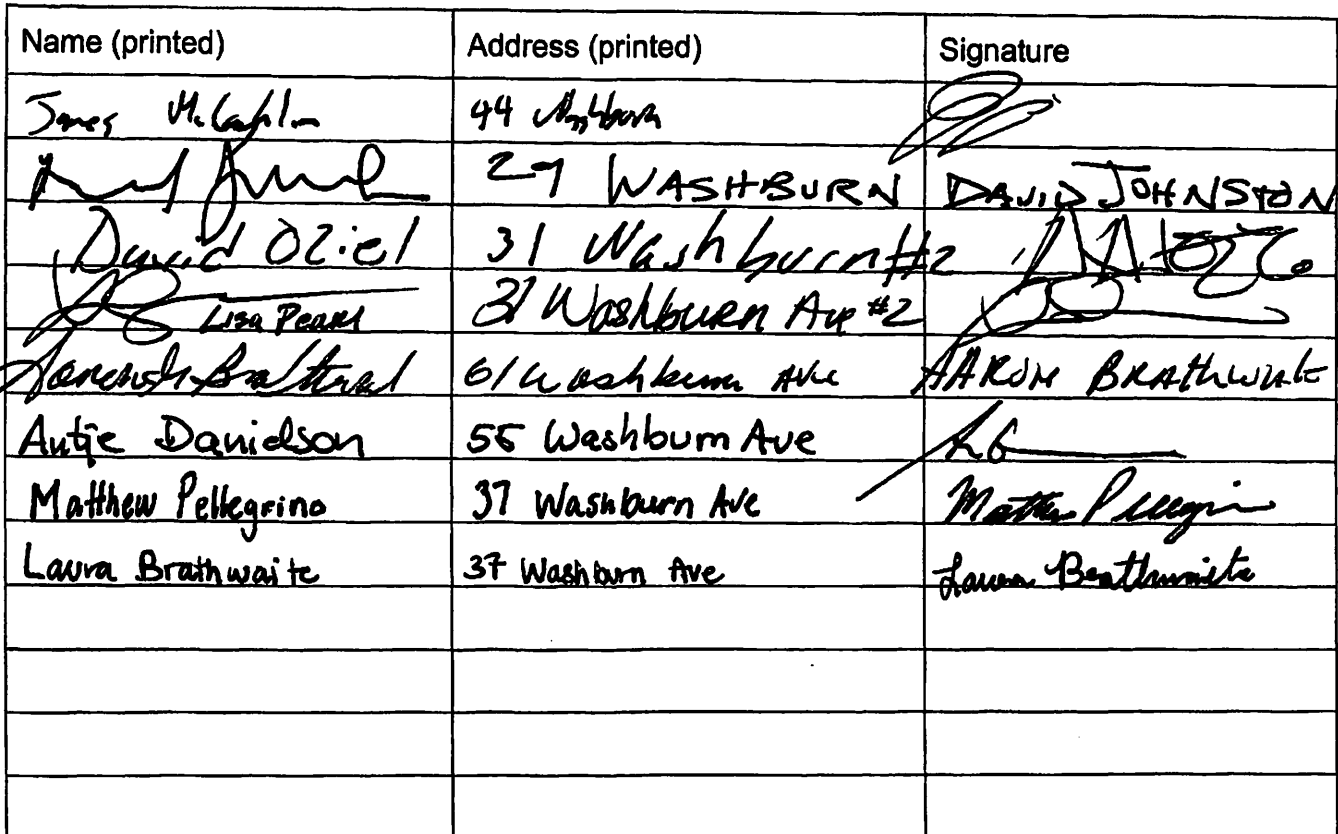 Name (printed) Address (printed) Signature
James McLaughlin 44 Washburn
27 WASHBURN DAVID JOHNSTON
David Oziel 31 Washburn #2
Lisa Pearl 31 Washburn Ave #2
61 Washburn Ave AARON BRAthwaite
Antje Danielson 55 Washburn Ave
Matthew Pellegrino 37 Washburn Ave Matthew Pellegrin
Laura Brathwaite 37 Washburn Ave Laura Brathwaite